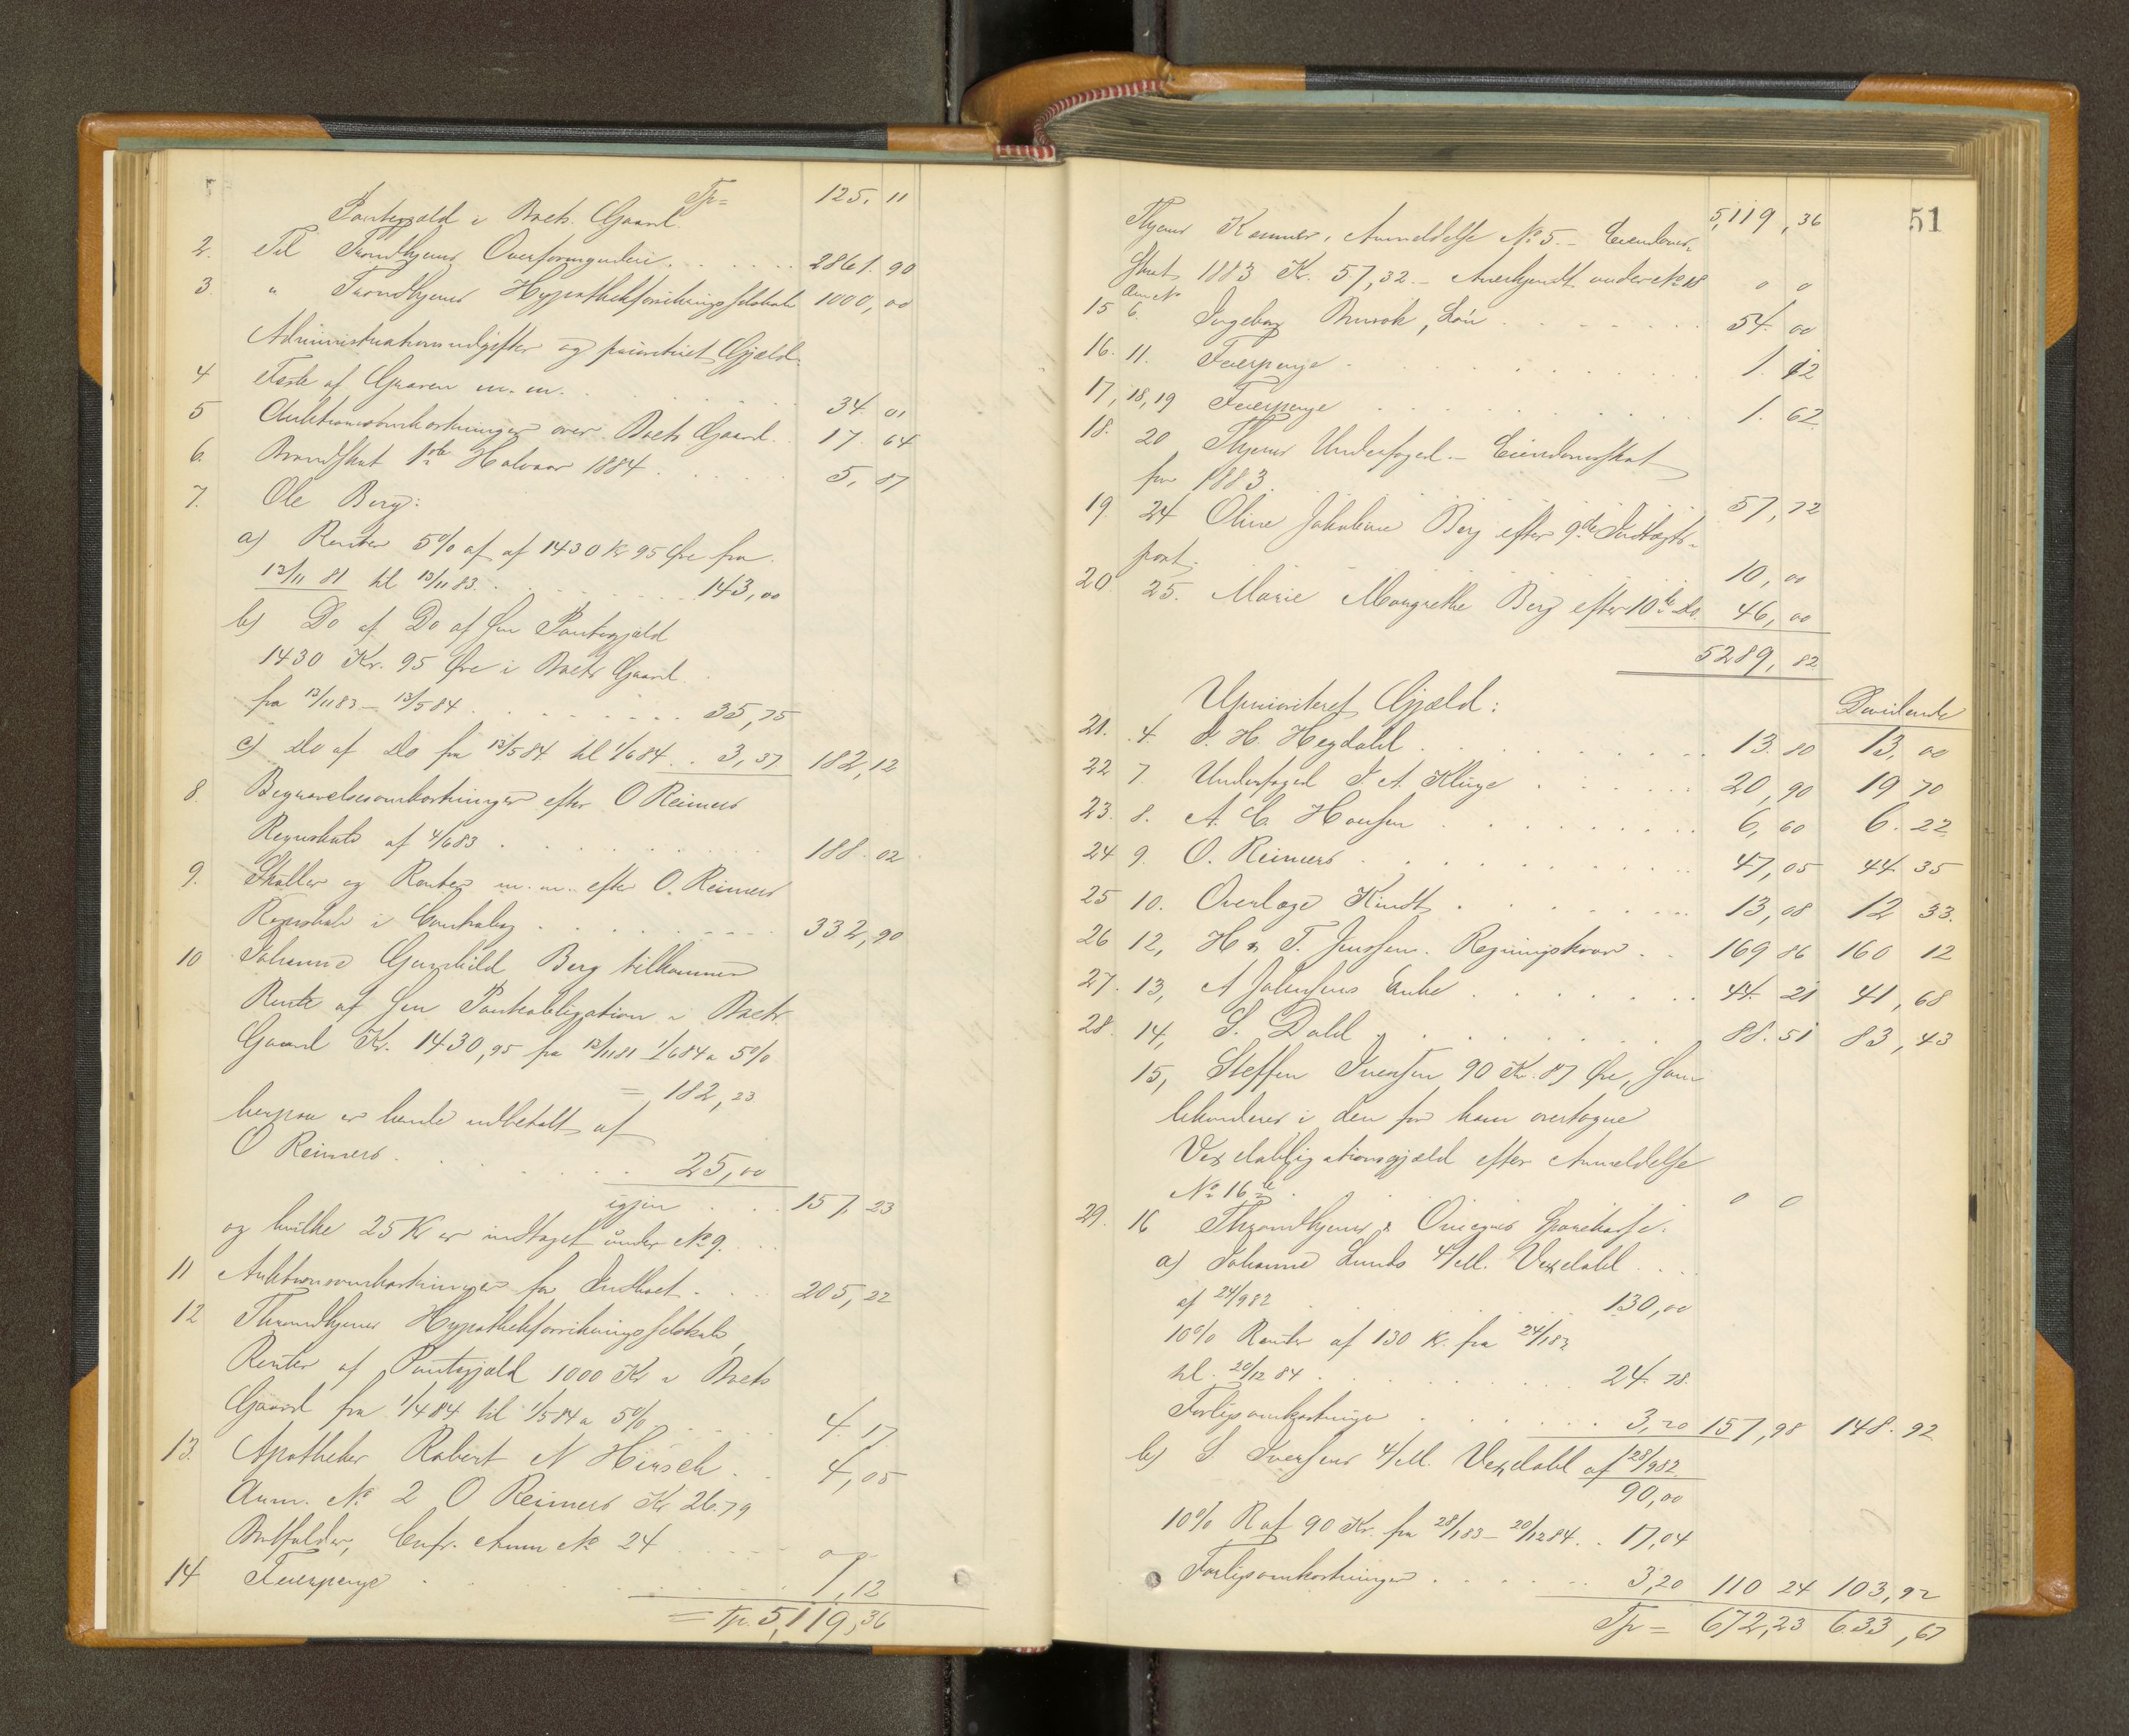 Tp= 125, 11
Pantegjæld i Boets Gaard.
2. Til Trondhjems Overformynderi . . . . . 2861. 90
3 " Trondhjems Hypothekforsikringsselskab 1000, 00
Administrationsudgifter og prioriteret Gjæld.
4 Fæste af Graven m. m. . . . 34. 01
5 Auktionsomkostninger over Boets Gaard. . 17. 64
6. Brandskat 1ste Halvaar 1884 . . . . . 5, 87
7. Ole Berg:
a) Renter 5% af af 1430 Kr 95 Øre fra
13/11 81 til 13/11 83. . . . . . . 143,00
b) Do af Do af sin Pantegjæld
1430 Kr. 95 Øre i Boets Gaard
fra 13/11 83 – 13/5 84 . . . . . . . 35,75
c) Do af Do fra 13/5 84 til 1/6 84 . . 3,37 182,12
8. Begravelsesomkostninger efter O Reimers
Regnskab af 4/6 83 . . . . . . . 188. 02
9. Skatter og Renter m. m. efter O. Reimers
Regnskab i . . . . . . 332,90
10 Johanne Gunhild Berg tilkommer
Rente af sin Pantobligation i Boets
Gaard Kr. 1430,95 fra 13/11 81 – 1/6 84 a 5%
= 182,23
herpaa er hende udbetalt af
O Reimers . . . . . . 25,00
igjen . . . 157. 23
og hvilke 25 Kr er indtaget under No 9. . .
11 Auktionsomkostninger for Indboet . . . 205,22
12 Throndhjems Hypothekforsikringsselskab,
Renter af Pantegjæld 1000 Kr i Boets
Gaard fra 1/4 84 til 1/5 84 a 5% . . . . 4. 17
13. Apotheker Robert N Hirsch . . 4,05
Anm. No 2 O Reimers Kr. 26.79
Bortfalder, Cnfr. Anm No 24 . . . .
14 Feierpenge . . . . . . . 1,12
= Tp. 5,119,36
51
5,119,36
Thjems Kæmner, Anmeldelse No 5. – Eiendoms-
skat 1883 Kr. 57,32. – Anerkjendt under No 18 0 0
Anm No
15 6. Ingeborg , Løn . . . . . . . 54. 00
16. 11. Feierpenge . . . . . . . 1. 12
17, 18, 19 Feierpenge . . . . . . . 1. 62
18. 20 Thjems Underfoged. – Eiendomsskat
for 1883 . . . . . . . 57,72
19 24 Oline Jakobine Berg efter 9de Indtægts-
post. . . . . . . 10,00
20 25. Marie Mangrethe Berg efter 10de Do. 46,00
5289, 82
Uprioriteret Gjæld: Dividende
21. 4 I. H. Hegdahl . . . . . . . 13. 80 13, 00
22 7. Underfoged I A. Klüge . . . . . . 20,90 19 70
23. 8. A. C. Hansen . . . . . . . 6,60 6. 22
24 9. O. Reimers . . . . . . . 47,05 44. 35
25 10. Overlæge Kindt . . . . . . . 13,08 12 33.
26 12, H & T. Jenssen. Regningskrav . . 169 86 160 12
27. 13, A Johnsens Enke . . . . . . . 44. 21 41,68
28. 14, S. Dahl . . . . . . . 88. 51 83,43
15, Steffen Iversen 90 Kr. 87 Øre, som
likvideres i den for ham overtagne
Vexelobligationsgjæld efter Anmeldelse
No 16 b . . . . . . 0 0
29. 16 Throndhjems & Sparekasse.
a) Johanne Lunds 4/M. Vexelobl . . .
af 24/9 82 . . . . . . . 130,00
10% Renter af 130 Kr. fra 24/1 83
til 20/12 84 . . . . . . . 24. 78.
Forligsomkostninger . . . . . . 3,20 157,98 148. 92
b) S. Iversens 4/M. Vexelobl af 28/9 82
90,00
10% R af 90 Kr. fra 28/1 83 – 20/12 84. . 17,04
Forligsomkostninger . . . . . . 3,20 110 24 103,92
Tp = 672,23 633,67